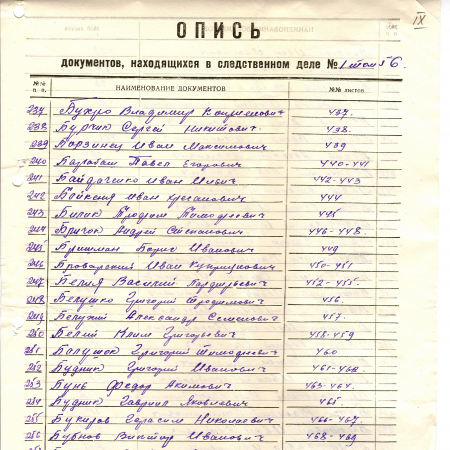 IX
ОПИСЬ
документов, находящихся в следственном деле № 1 том 56.
№№ п. п. НАИМЕНОВАНИЕ ДОКУМЕНТОВ №№ листов
237 Бухро Владимир 437.
238 Бурчик Сергей Никитович 438.
239 Барзинец Иван Максимович 439
240 Барабаш Павел Егорович 440-441
241 Байдаченко Иван Ильич 442-443
242 Иван 444
243 Билик Трофим Тимофеевич 445
244 Бричок Андрей Степанович 446-448.
245 Бришман Борис Иванович 449
246 Броварский Иван 450-451
247 Белия Василий 452-455.
248 Белушко Григорий Трофимович 456.
249 Белуцкий Александр Семенович 457.
250 Белий Клим Григорьевич 458-459
251 Балушок Григорий Тимофеевич 460
252 Будник Григорий Иванович 461-462.
253 Бунь Федор Акимович 463-464.
254 Будник Гавриил Яковлевич 465
255 Букиров Герасим Николаевич 466-467.
256 Бубнов Виктор Иванович 468-469